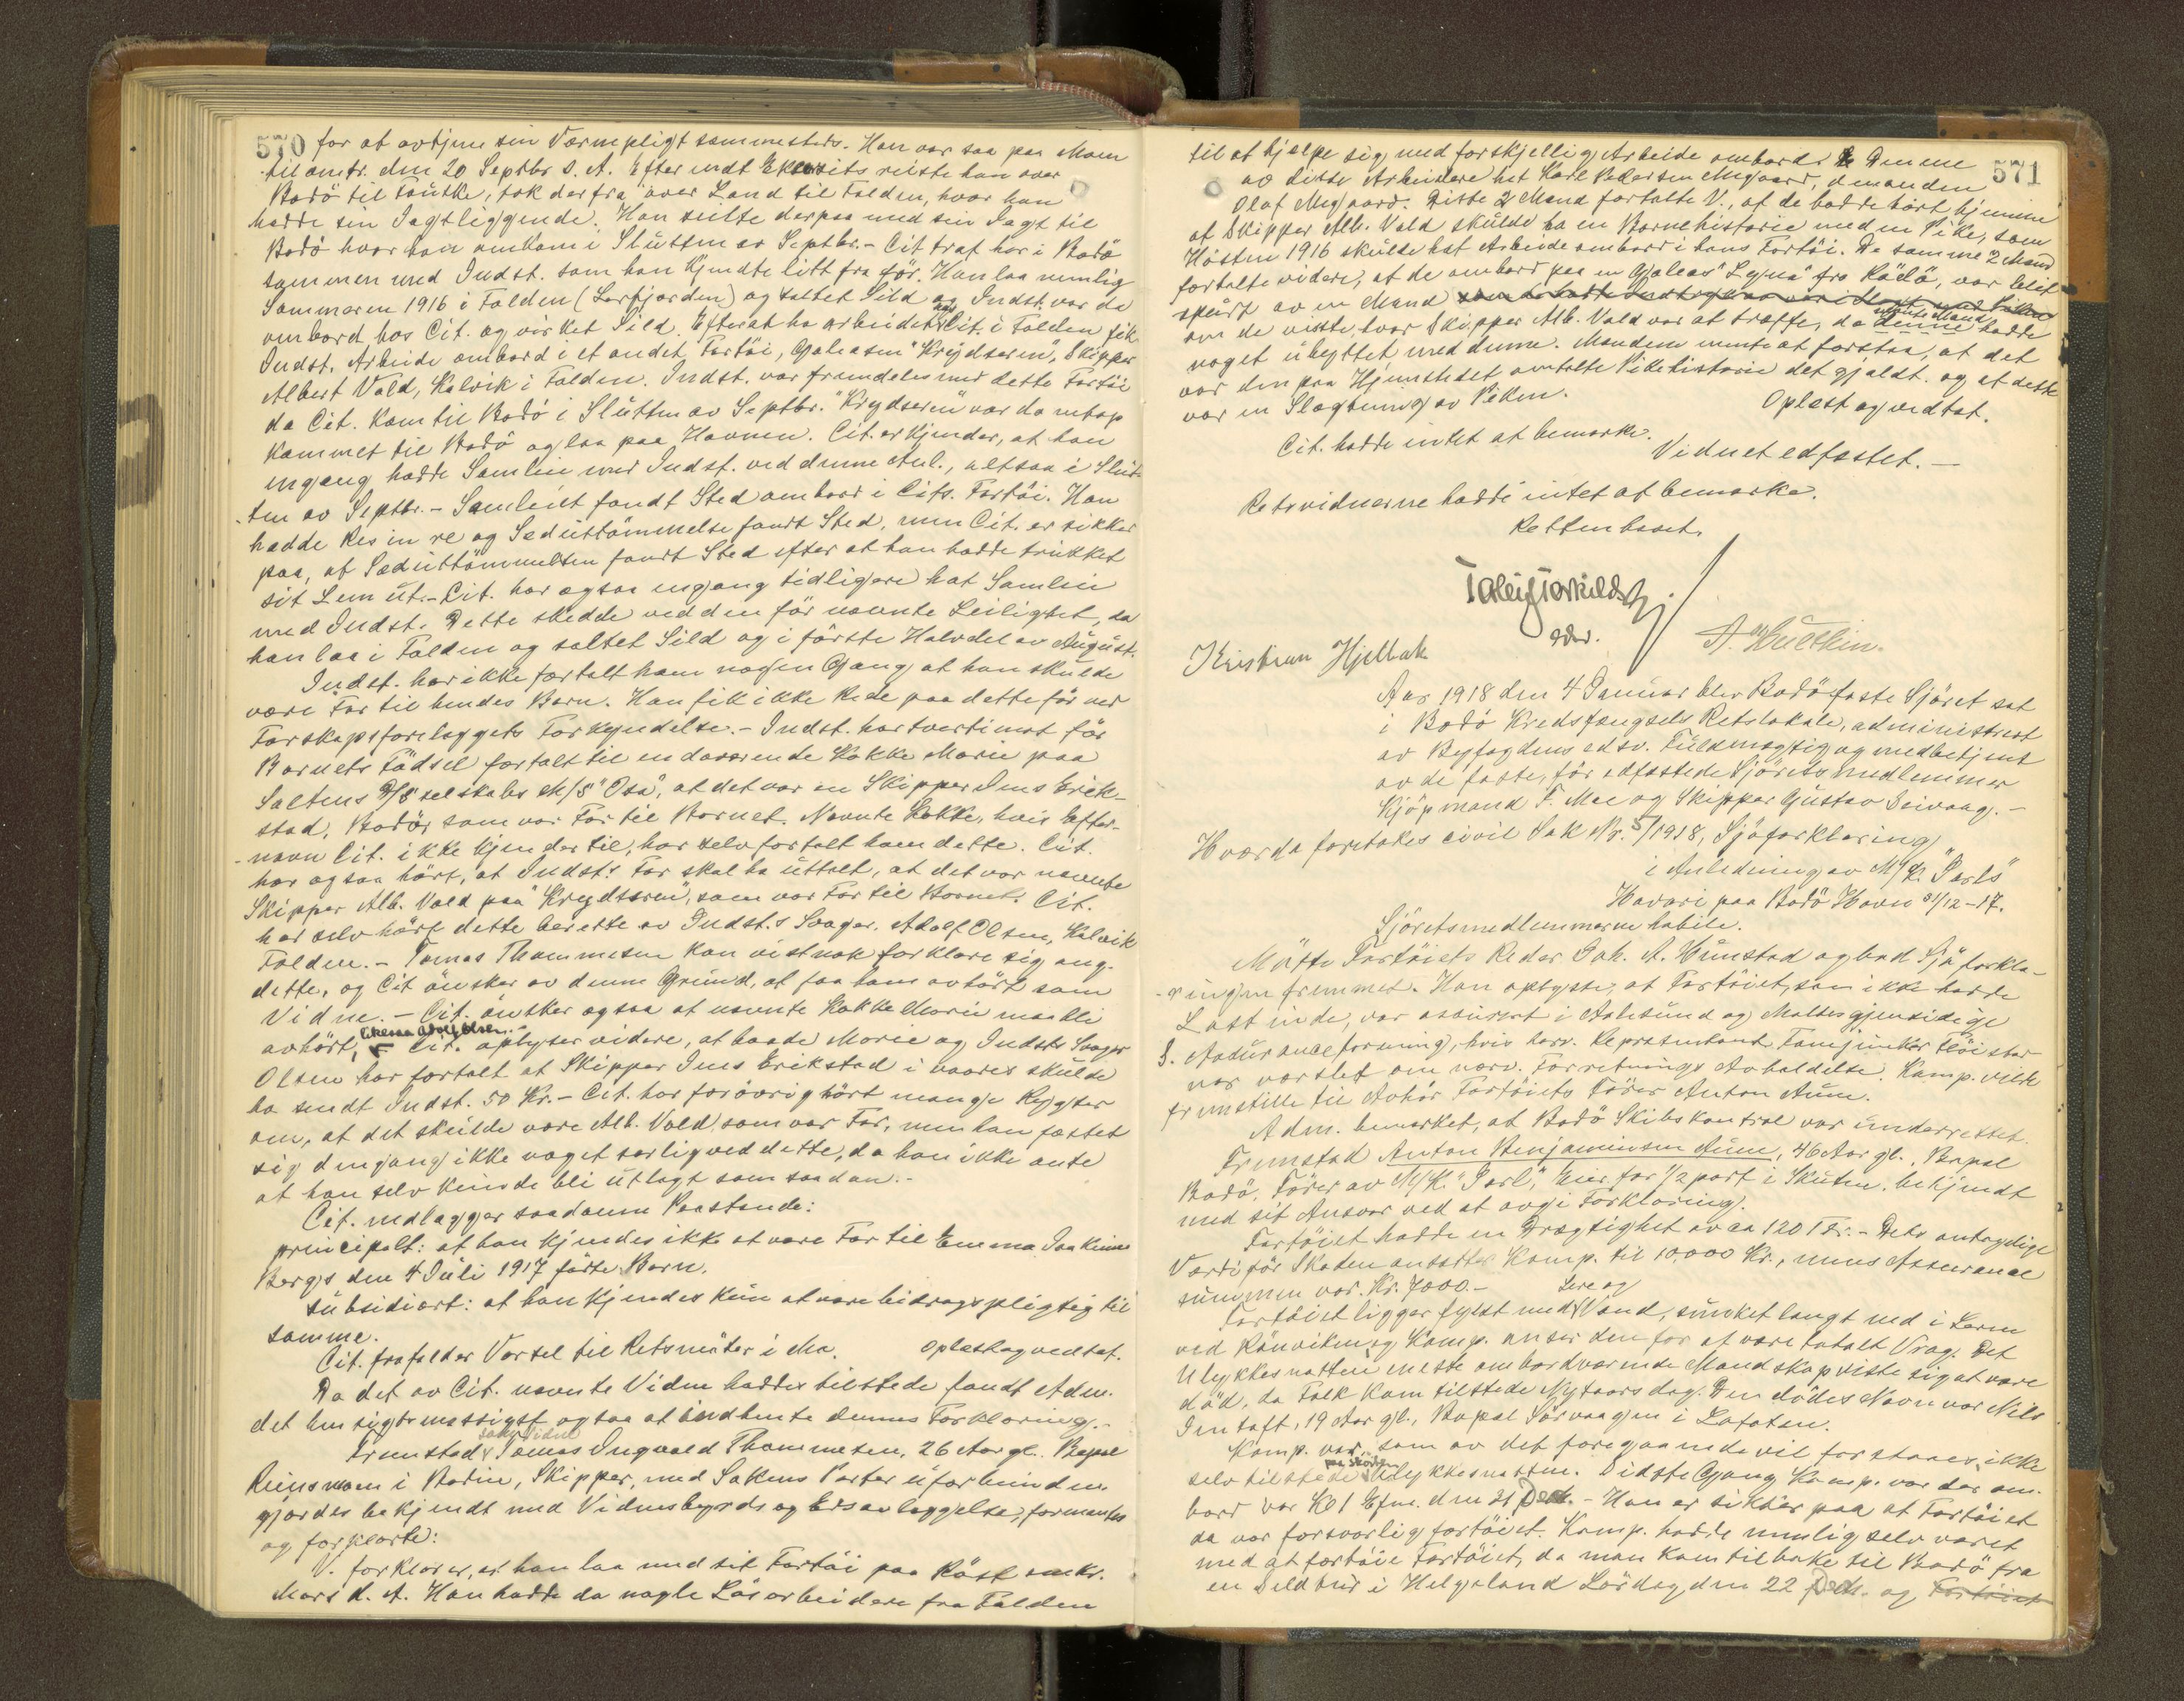 570
for at avtjene sin Værnepligt sammesteds. Han var saa paa Moen
til omtr. den 20 Septbr s. A. Efter endt Ekserits reiste han over
Bodö til Fauske, tok derfra over Land til Folden, hvor han
hadde sin Jagt liggende. Han seilte derpaa med sin Jagt til
Bodö hvor han ankom i Slutten av Septbr. - Cit. traf her i Bodö
sammen med Indst. som han kjendte litt fra før. Han laa nemlig
Sommeren 1916 i Folden (Lerfjorden) og saltet Sild og Indst. var da
ombord hos Cit. og virket Sild. Efterat ha arbeidet hos Cit. i Folden fik
Indst. Arbeide ombord i et andet Fartöi, Galeasen "Krydseren", Skipper
Albert Vold, Kalvik i Folden. Indst. var fremdeles med dette Fartöi
da Cit. kom til Bodö i Slutten av Septbr. "Krydseren" var da netop
kommet til Bodö og laa paa Havnen. Cit. erkjender, at han
engang hadde Samleie med Indst. ved denne Anl., altsaa i Slut-
ten av Septbr. - Samleiet fandt Sted ombord i Cits. Fartöi. Han
hadde Res in re og Sæduttömmelse fandt Sted, men Cit. er sikker
paa, at Sæduttömmelsen fandt Sted efter at han hadde trukket
sit Lem ut. - Cit. har ogsaa engang tidligere hat Samleie
med Indst. Dette skedde ved den før nævnte Leilighet, da
han laa i Folden og saltet Sild og i förste Halvdel av August.
Indst. har ikke fortalt ham nogen Gang at han skulde
være Far til hendes Barn. Han fik ikke Rede paa dette før ved
Farskapsforelæggets Forkyndelse. - Indst. har tvertimot før
Barnets Födsel fortalt til en daværende Kokke Marie paa
Saltens D/S selskabs M/S "Osa", at det var en Skipper Jens Erik-
stad, Bodö, som var Far til Barnet. Nævnte Kokke, hvis Efter-
navn Cit. ikke kjender til, har selv fortalt ham dette. Cit.
har ogsaa hört, at Indst.s Far skal ha uttalt, at det var nævnte
Skipper Alb. Vold paa "Krydseren", som var Far til Barnet. Cit.
har selv hört dette berette av Indst.s Svoger, Adolf Olsen, Kalvik
Folden. - Tomas Thommesen kan vistnok forklare sig ang.
dette, og Cit. önsker av denne Grund, at faa ham avhört som
Vidne. - Cit. önsker ogsaa at nævnte Kokke Marie maa bli
avhört, likesaa Adolf Olsen. - Cit. oplyser videre, at baade Marie og Indsts Svoger
Olsen har fortalt at Skipper Jens Erikstad i vaares skulde
ha sendt Indst. 50 Kr. - Cit. har forövrig hört mange Rygter
om, at det skulde være Alb. Vold som var Far, men han fæstet
sig dengang ikke noget særlig ved dette, da han ikke ante
at han selv kunde bli utlagt som saadan. -
Cit. nedlægger saadanne Paastande:
principalt: at han kjendes ikke at være Far til Emma Joakime
Bergs den 4 Juli 1917 födte Barn.
subsidiært: at han kjendes kun at være bidragspligtig til
samme.
Cit. frafalder Varsel til Retsmöter i Mo. Oplæst og vedtat.
Da det av Cit. nævnte Vidne hadde tilstede fandt Adm.
det hensigtsmæssigst ogsaa at indhente dennes Forklaring. -
Fremstod som Vidne Tomas Ingvald Thommesen, 26 Aar gl. Bopæl
i Bodin, Skipper, med Sakens Parter uforbunden
gjordes bekjendt med Vidnesbyrds og Edsavlæggelse, formantes
og forklarte:
V. forklarer, at han laa med sit Fartöi paa Röst omkr.
Mars d. A. Han hadde da nogle Løsarbeidere fra Folden
571
til at hjelpe sig med forskjellig Arbeide ombord. Den ene
av disse Arbeidere het Karl Pedersen Megaard, den anden
Olaf Megaard. Disse 2 Mand fortalte V., at de hadde hört hjemme
at Skipper Alb. Vold skulde ha en Barnehistorie med en Pike, som
Høsten 1916 skulde hat Arbeide ombord i hans Fartöi. De samme 2 Mand
fortalte videre, at de ombord paa en Galeas "Lyna" fra Rödö, var blit
spurt av en Mand
om de visste, hvor Skipper Alb. Vold var at træffe, da denne hadde
noget ubyttet med denne. Manden mente at forstaa, at det
var den paa Hjemstedet omtalte Pikehistorie det gjaldt, og at dette
var en Slægtning av Piken.
Oplest og vedtat.
Cit. hadde intet at bemerke.
Vidnet edfæstet. -
Retsvidnerne hadde intet at bemerke.
Retten hævet.
Toleif Torkildsen
edsv.
Kristian Hjelbak
Aar 1918 den 4 Januar blev Bodö faste Sjöret sat
i Bodö Kredsfængsels Retslokale, administrert
av Byfogdens edsv. Fuldmægtig og medbetjent
av de faste, før edfæstede Sjöretsmedlemmer
Kjöpmand F. Moe og Skipper Gustav Seivaag. -
Hvorda foretokes civil Sak Nr. 5/1918, Sjöforklaring
i Anledning av M/K. "Jarl"s
Havari paa Bodö Havn 31/12-17.
Sjöretsmedlemmerne habile.
Mötte Fartöiets Reder Joh. A. Hunstad og bad Sjöforkla-
ringen fremmet. Han oplyste, at Fartöiet, som ikke hadde
Last inde, var assurert i Aalesund og Moldes gjensidige
S. Assuranceforening, hvis herv. Repræsentant
var varslet om nærv. Forretnings Avholdelse. Komp. vilde
fremstille til Avhör Fartöiets Förer Anton Aune.
Adm. bemerket, at Bodö Skibskontrol var underrettet.
Fremstod Anton Benjaminsen Aune, 46 Aar gl., Bopæl
Bodö, Förer av M/K. "Jarl", Eier for 1/2 part i Skuten, bekjendt
med sit Ansvar ved at avgi Forklaring.
Fartöiet hadde en Drægtighet av ca 120 Tdr. - Dets antagelige
Værdi før Skaden ansætter Komp. til 10,000 Kr., mens Assurance
summen var Kr. 7000. -
Fartöiet ligger fyldt med Lere og Vand, sunket langt ned i Leren
ved Rönvikens og Komp. anser den for at være totalt Vrag. Det
Ulykkesnatten eneste ombordværende Mandskap viste sig at være
död, da Folk kom tilstede Nytaarsdag. Den dödes Navn var Nils
Jentoft, 19 Aar gl., Bopæl Sörvaagen i Lofoten.
Komp. var, som av det foregaaende vil forstaaes, ikke
selv tilstede paa Sköiten Ulykkesnatten. Sidste Gang Komp. var der om-
bord var Kl 1 Efm. den 31 Decb. - Han er sikker paa at Fartöiet
da var forsvarlig fortöiet. Komp. hadde nemlig selv været
med at fortöie Fartöiet, da man kom tilbake til Bodö fra
en Sildtur i Helgeland Lördag den 22 Decb. og Fartöiet